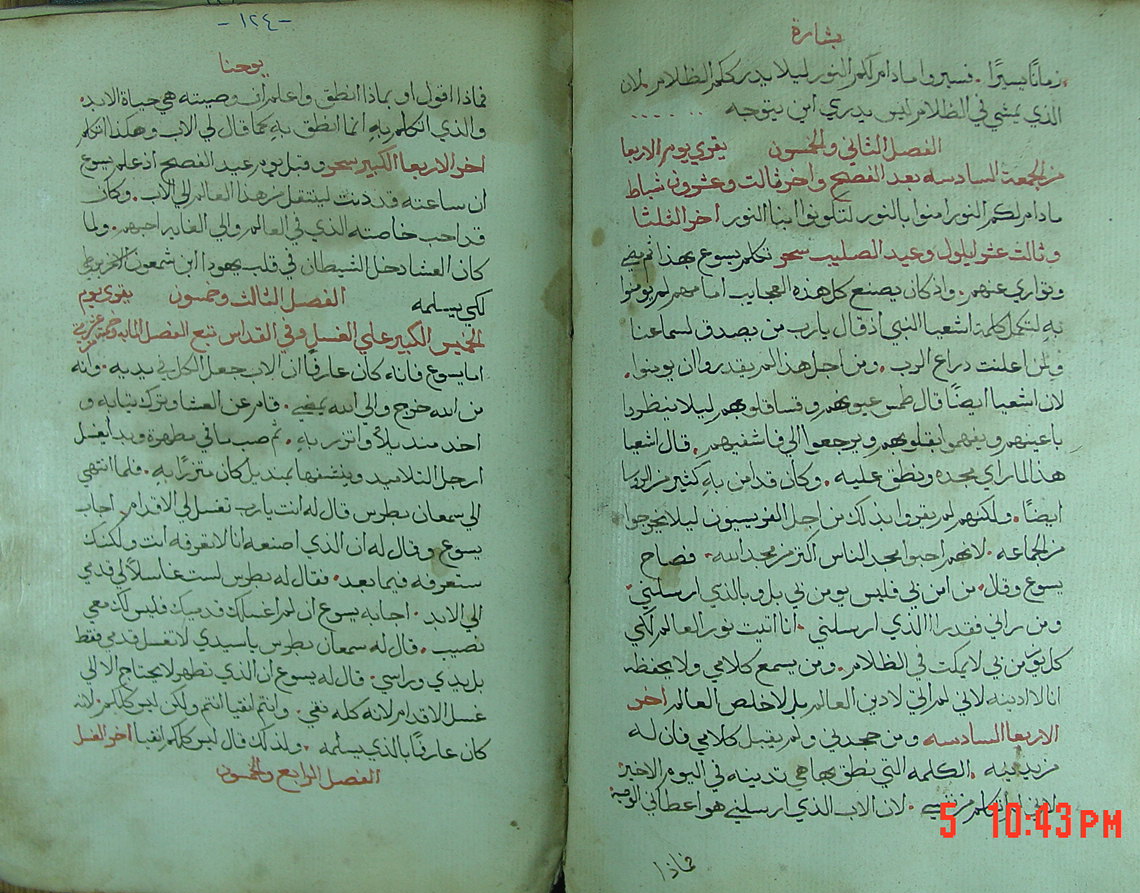 بشارة
زمانًا يسيرًا. فسيروا مادام لكم النور ليلا يدرككم الظلام. لان
الذي يمشي في الظلام ليس يدري اين يتوجه
الفصل الثاني والخمسون يقري يوم الاربعا
من الجمعة السادسه بعد الفصح واخر ثالث وعشرون شباط
مادام لكم النور امنوا بالنور لتكونوا ابنا النور اخر الثلثا
وثالث عشر ايلول وعيد الصليب سحر تكلم يسوع بهذا ثم مضي
وتواري عنهم. واذ كان يصنع كل هذه العجايب امامهم لم يومنوا
به لتكمل كلمة اشعيا النبي اذ قال يارب من يصدق لسماعنا
ولمن اعلنت دراع الرب. ومن اجل هذا لم يقدروا ان يومنوا.
لان اشعيا ايضًا قال طمس عيونهم وقسا قلوبهم ليلا ينظروا
باعينهم ويفهموا بقلوبهم ويرجعوا الي فاشفيهم. قال اشعيا
هذا لما راي مجده ونطق عليه. وكان قد امن به كثير من الروسا
ايضًا. ولكنهم لم يقروا بذلك من اجل الفريسيون ليلا يخرجوا
من الجماعه. لانهم احبوا مجد الناس اكثر من مجد الله. فصاح
يسوع وقال. من امن بي فليس يومن بي بل وبالذي ارسلني.
ومن راني فقد راا الذي ارسلني. انا اتيت نور العالم لكي
كل يومن بي لا يمكث في الظلام. ومن يسمع كلامي ولا يحفظه
انا لا ادينه لاني لم اتي لادين العالم بل لاخلص العالم اخر
الاربعا السادسه ومن جحدني ولم يقبل كلامي فان له
من يدينه. الكلمه التي نطق بها هي تدينه في اليوم الاخير
لاني لم اتكلم من نفسي. لان الاب الذي ارسلني هو اعطاني الوصيه
فماذا
-١٢٤-
يوحنا
فماذا اقول او بماذا انطق واعلم ان وصيته هي حياة الابد.
والذي اتكلم به انما انطق به كما قال لي الاب وهكذا اتكلم
اخر الاربعا الكبير سحر وقبل يوم عيد الفصح اذ علم يسوع
ان ساعته قد دنت لينتقل من هذا العالم الي الاب. وكان
قد احب خاصته الذي في العالم والي الغايه احبهم. ولما
كان العشا دخل الشيطان في قلب يهودا ابن شمعون الاخريوطي
لكي يسلمه الفصل الثالث وخمسون يقري يوم
الخميس الكبير علي الغسل وفي القداس تبع الفصل المايه
اما يسوع فانه كان عارفًا ان الاب جعل الكل في يديه. وانه
من الله خرج والي الله يمضي. قام عن العشا وترك ثيابه و
اخد منديلاً واتزر به. ثم صب ما في مطهرة وبدا يغسل
ارجل التلاميد وينشفها بمنديل كان متزرًا به. فلما انتهي
الي سمعان بطرس قال له انت يارب تغسل لي الاقدام. اجاب
يسوع وقال له ان الذي اصنعه انا لا تعرفه انت ولكنك
ستعرفه فيما بعد. فقال له بطرس لست غاسلاً لي قدمي
الي الابد. اجابه يسوع ان لم اغسلك قدميك فليس لك معي
نصيب. قال له سمعان بطرس ياسيدي لا تغسل قدمي فقط
بل يدي وراسي. قال له يسوع ان الذي تطهر لا يحتاج الا الي
غسل الاقدام لانه كله نقي. وانتم انقيا انتم ولكن ليس كلكم. لانه
كان عارفًا بالذي يسلمه. ولذلك قال ليس كلكم انقيا اخر الغسل
الفصل الرابع والخمسون
5 10:43 PM